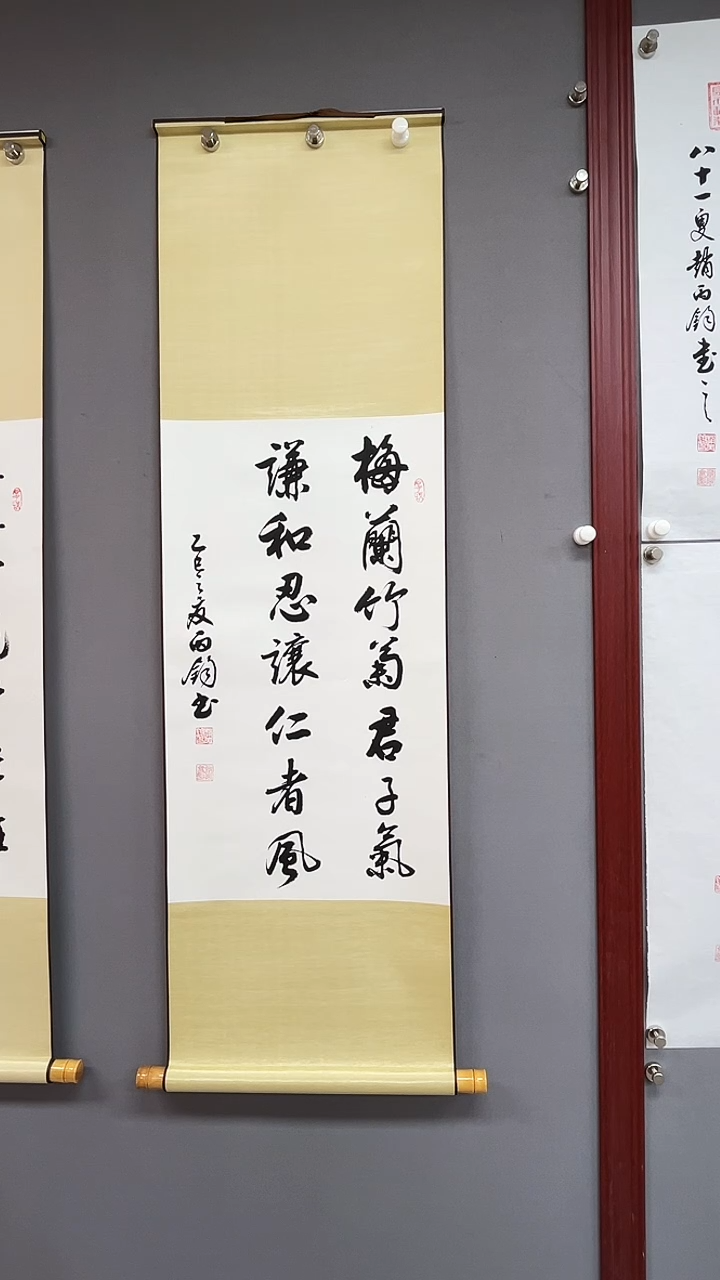 梅蘭竹菊君子氣
謙和忍讓仁者風
乙巳之夏丙鈞书
八十一叟趙丙鈞書